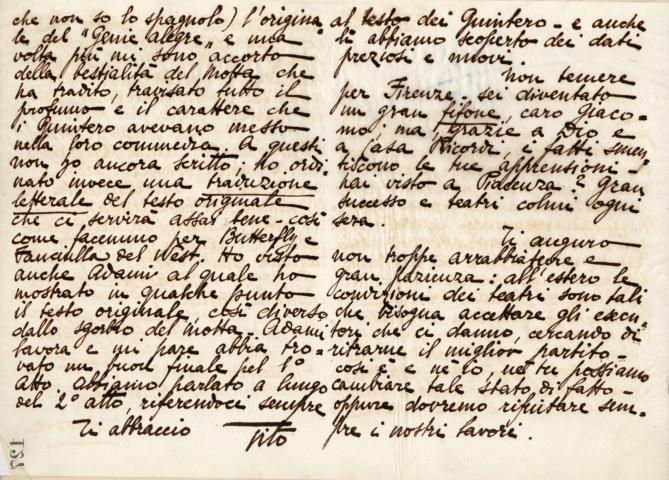 che non so lo spagnolo) l'origina
le del "Genie Alegre" e una
volta più mi sono accorto
della bestialità del Motta che
ha tradito, travisato tutto il
profumo e il carattere che
i Quintero avevano messo
nella loro commedia. A questi
non ho ancora scritto; ho ordi
nato invece una traduzione
letterale del testo originale
che ci servirà assai bene - così
come facemmo per Butterfly e
Fanciulla del West. Ho visto
anche Adami al quale ho
mostrato in qualche punto
il testo originale, così diverso
dallo sgorbio del Motta - Adami
lavora e mi pare abbia tro-
vato un buon finale pel 1°
Atto. Abbiamo parlato a lungo
del 2° atto, riferendoci sempre
al testo dei Quintero - e anche
lì abbiamo scoperto dei dati
preziosi e nuovi.
Non temere
per Firenze - sei diventato
un gran fifone, caro Giaco-
mo; ma, grazie a Dio e
a Casa Ricordi, i fatti smen-
tiscono le tue apprensioni -
hai visto a Piacenza? Gran
successo e teatri colmi ogni
sera.
Ti auguro
non troppe arrabbiature e
gran pazienza: all'estero le
condizioni dei teatri sono tali
che bisogna accettare gli esecu-
tori che ci danno, cercando di
ritrarne il miglior partito -
così è e nè io, nè tu possiamo
cambiare tale stato di fatto -
oppure dovremo rifiutare sem-
pre i nostri lavori.
Ti abbraccio
Tito
137